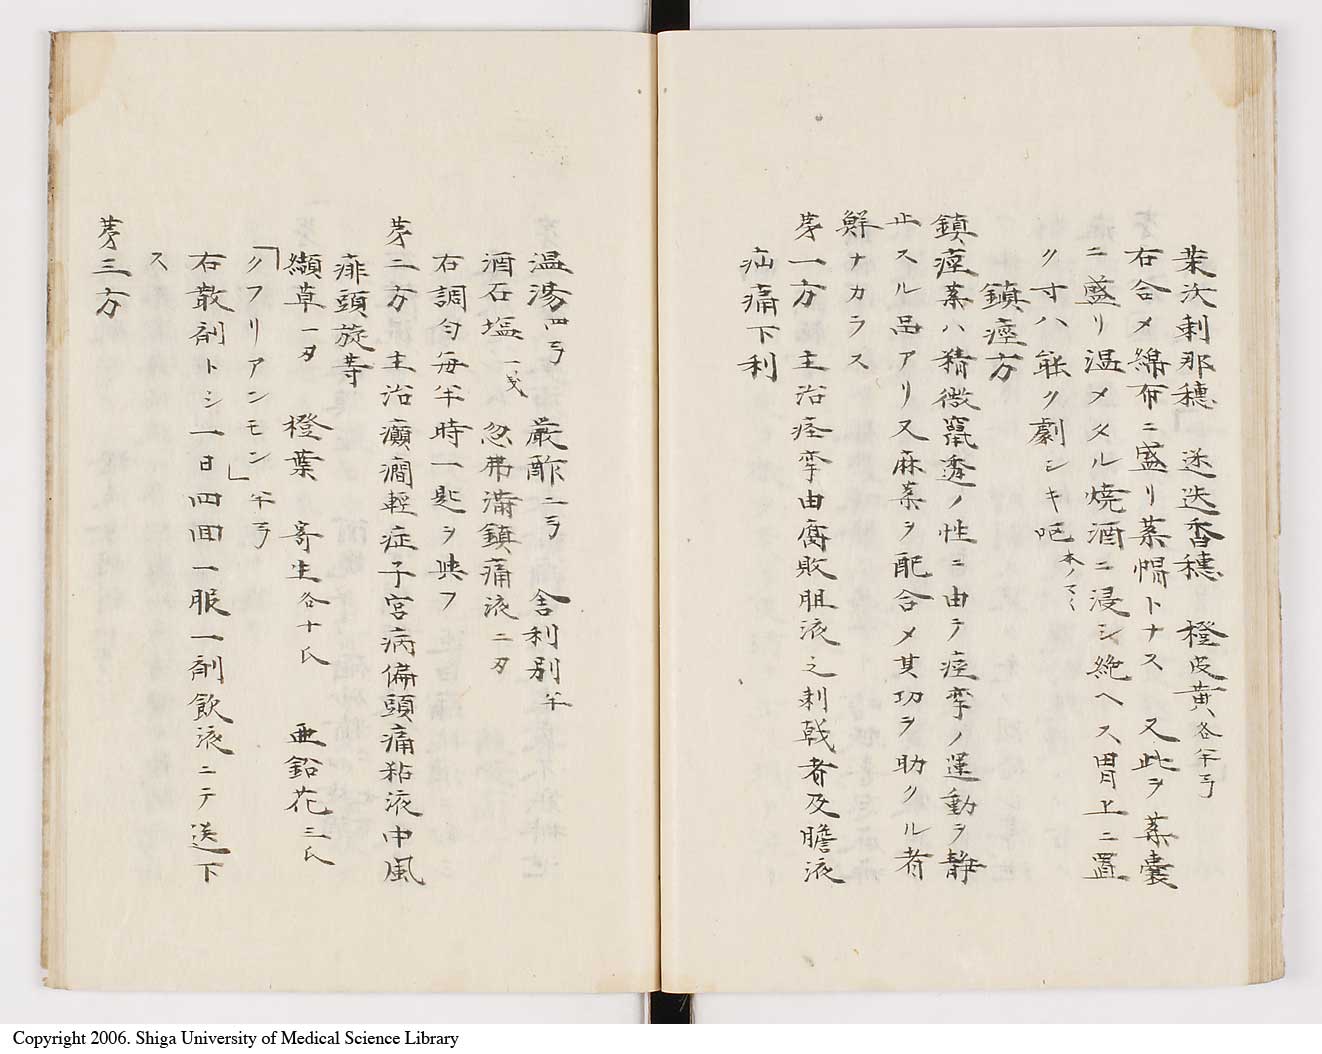 茉沃刺那穗　迷迭香穗　橙皮黄各半弓
右合メ綿布ニ盛リ菓帽トナス　又此ヲ薬嚢
ニ盛リ温メタル焼酒ニ浸シ絶ヘス胃上ニ置
ク寸ハ能ク劇シキ吧本ノマヽ
鎮痙方
鎮痙薬ハ精微竄透ノ性ニ由テ痙挛ノ運動ヲ静
止スル品アリ又麻薬ヲ配合メ其功ヲ助クル者
鮮ナカラス
苐一方　主治痙挛由腐敗胆液之刺戟者及膽液
疝痛下利
温湯四弓　厳酢二弓　舎利別半
酒石塩一戔　忽弗満鎮痛液二刄
右調匀毎半時一匙ヲ與フ
苐二方　主治癲癇輕症子宮病偏頭痛粘液中風
痱頭旋等
纈草一刄　橙葉　寄生各十氏　亜鉛花三氏
「クフリアンモン」半弓
右散剤トシ一日四回一服一剤飲液ニテ送下
ス
苐三方
Copyright 2006. Shiga University of Medical Science Library